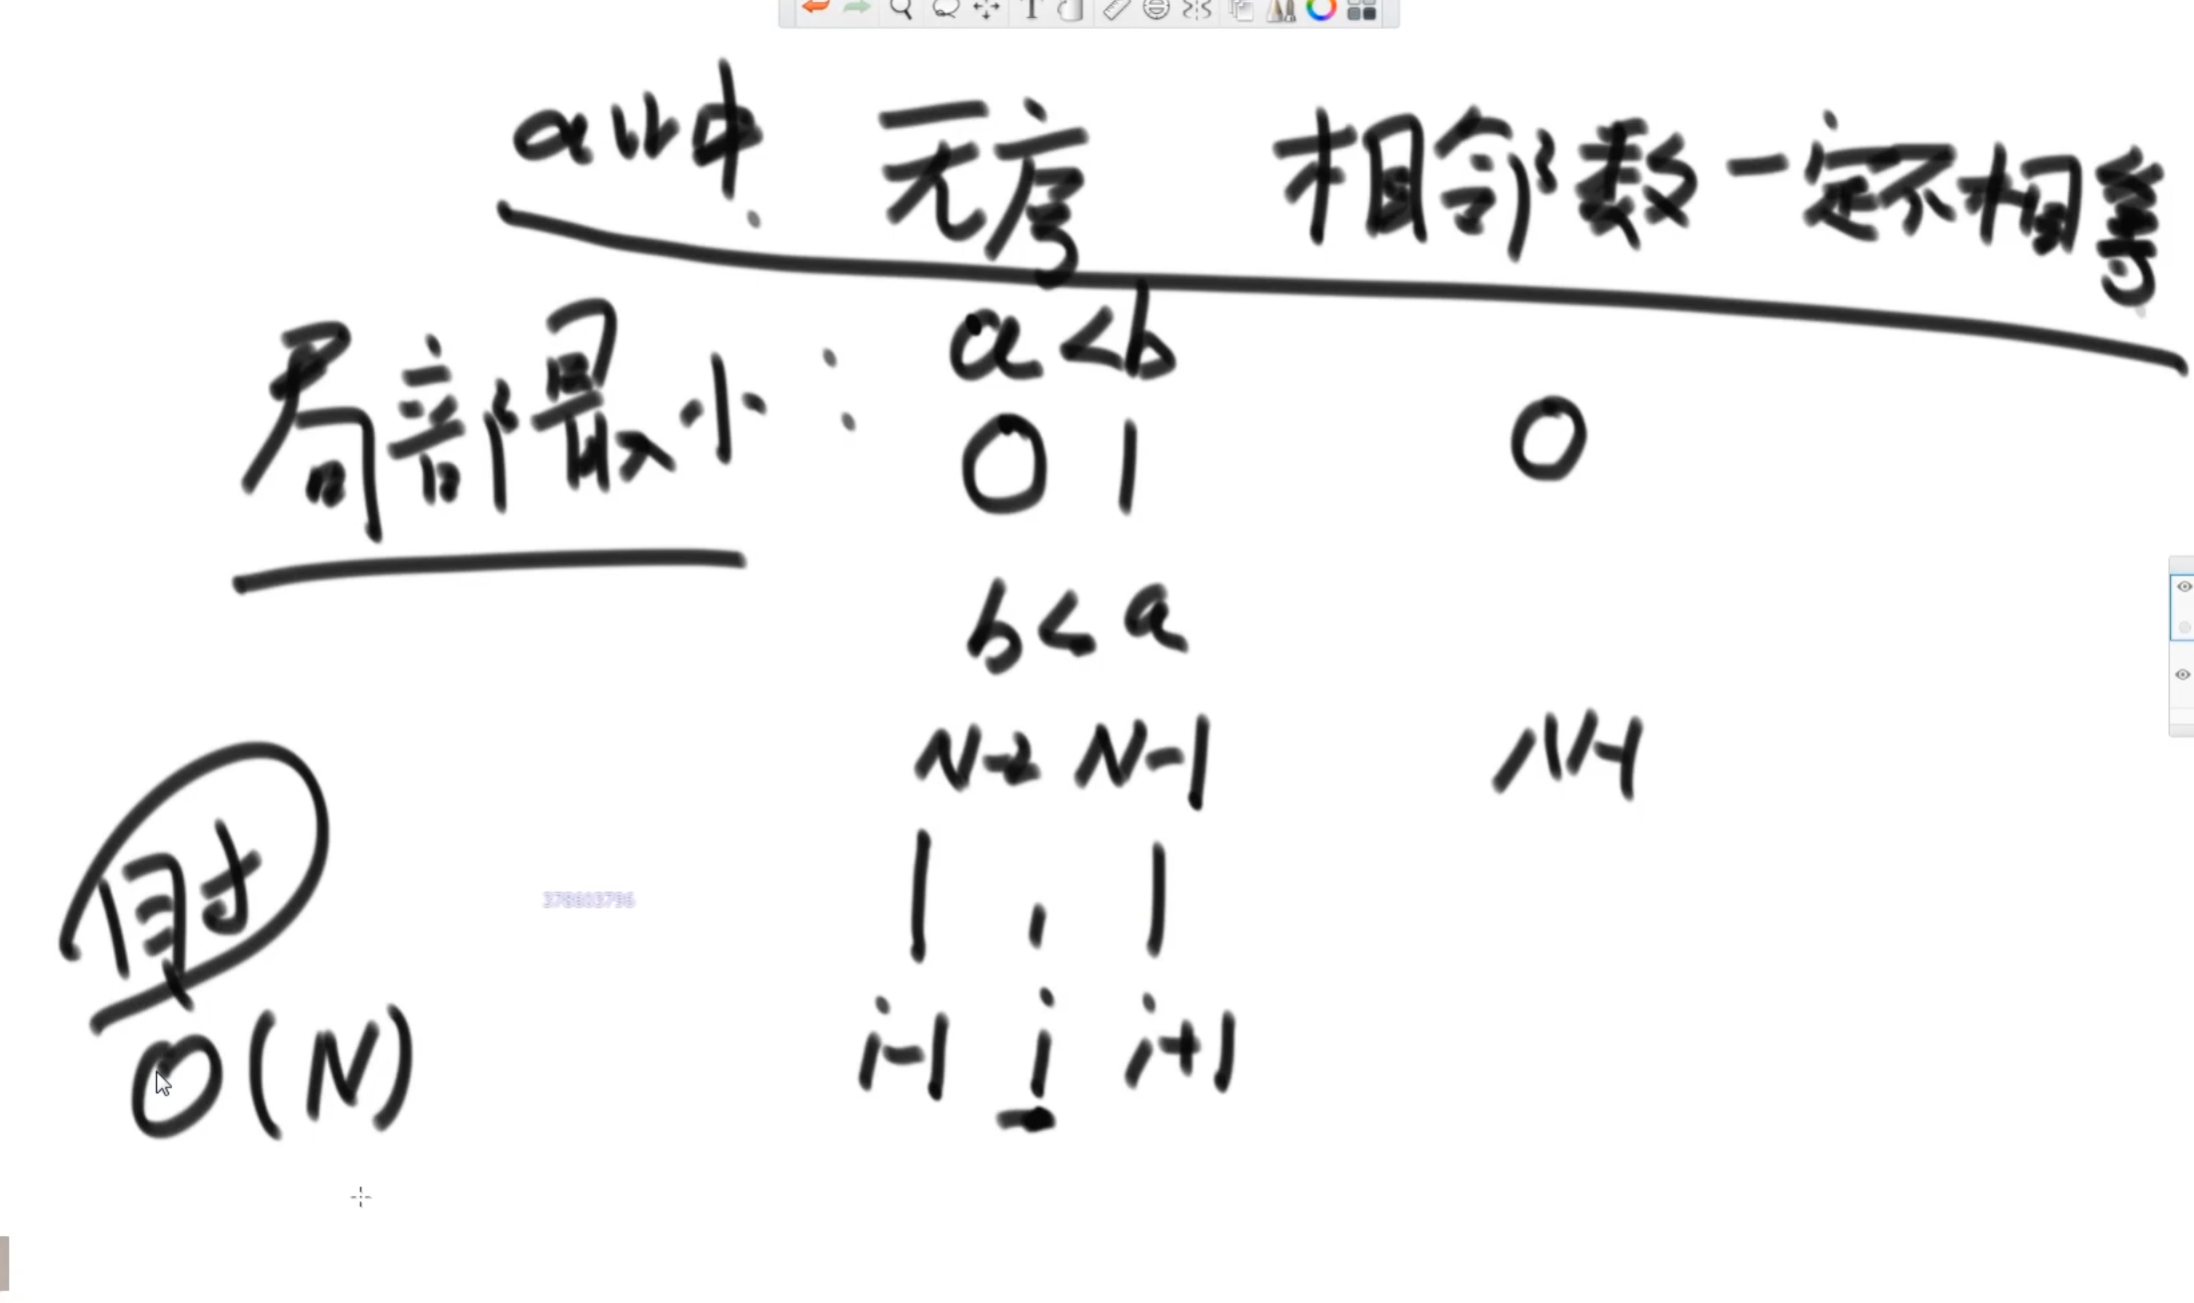 arr中 无序 相邻数一定不相等
局部最小: a<b
0 1 0
b<a
N-2 N-1 N-1
i-1 i i+1
时
O(N)
378603796